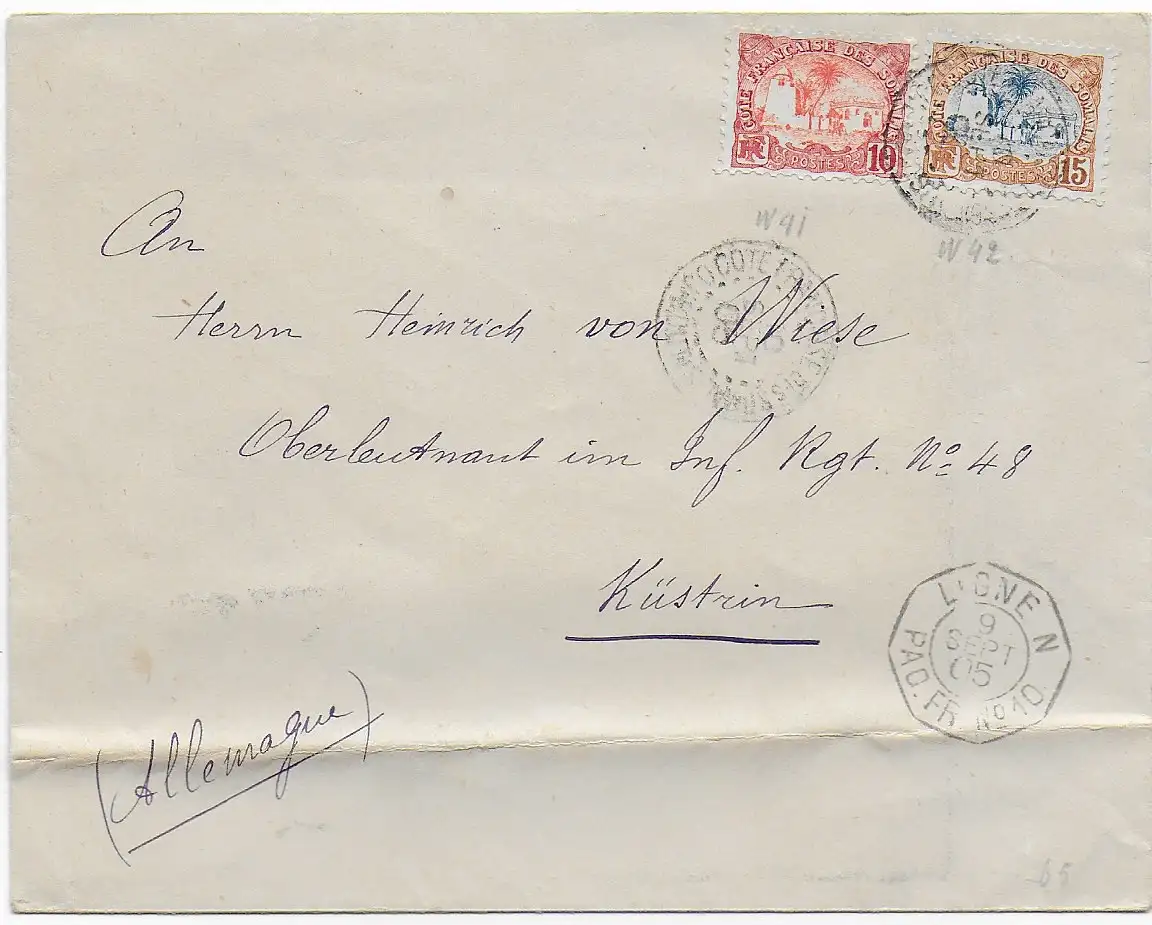 COTE FRANÇAISE DES SOMALIS
RF POSTES 10
COTE FRANÇAISE DES SOMALIS
RF POSTES 15
W 41
W 42
An
Herrn Heinrich von Wiese
Oberleutnant im Inf. Rgt. No 48
Küstrin
(Allemagne)
LIGNE N
9
SEPT
05
PAQ. FR. No 10
65